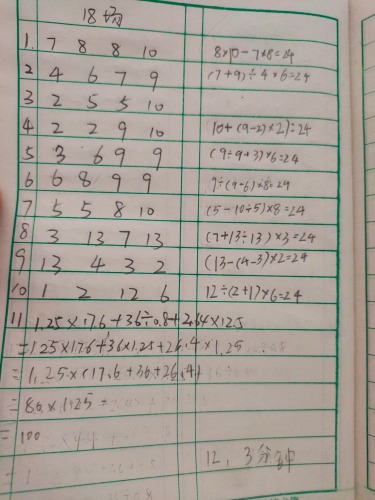 18場
1. 7 8 8 10 8×10-7×8=24
2 4 6 7 9 (7+9)÷4×6=24
3 2 5 5 10
4 2 2 9 10 10+(9-2)×2)=24
5 3 6 9 9 (9÷9+3)×6=24
6 6 8 9 9 9÷(9-6)×8=24
7 5 5 8 10 (5-10÷5)×8=24
8 3 13 7 13 (7+13÷13)×3=24
9 13 4 3 2 (13-(4-3)×2=24
10 1 2 12 6 12÷(2+1)×6=24
11 1.25×17.6+36÷0.8+2.64×12.5
=1.25×17.6+36×1.25+26.4×1.25
=1.25×(17.6+36+26.4)
=80×1.25
=100
12, 3分钟